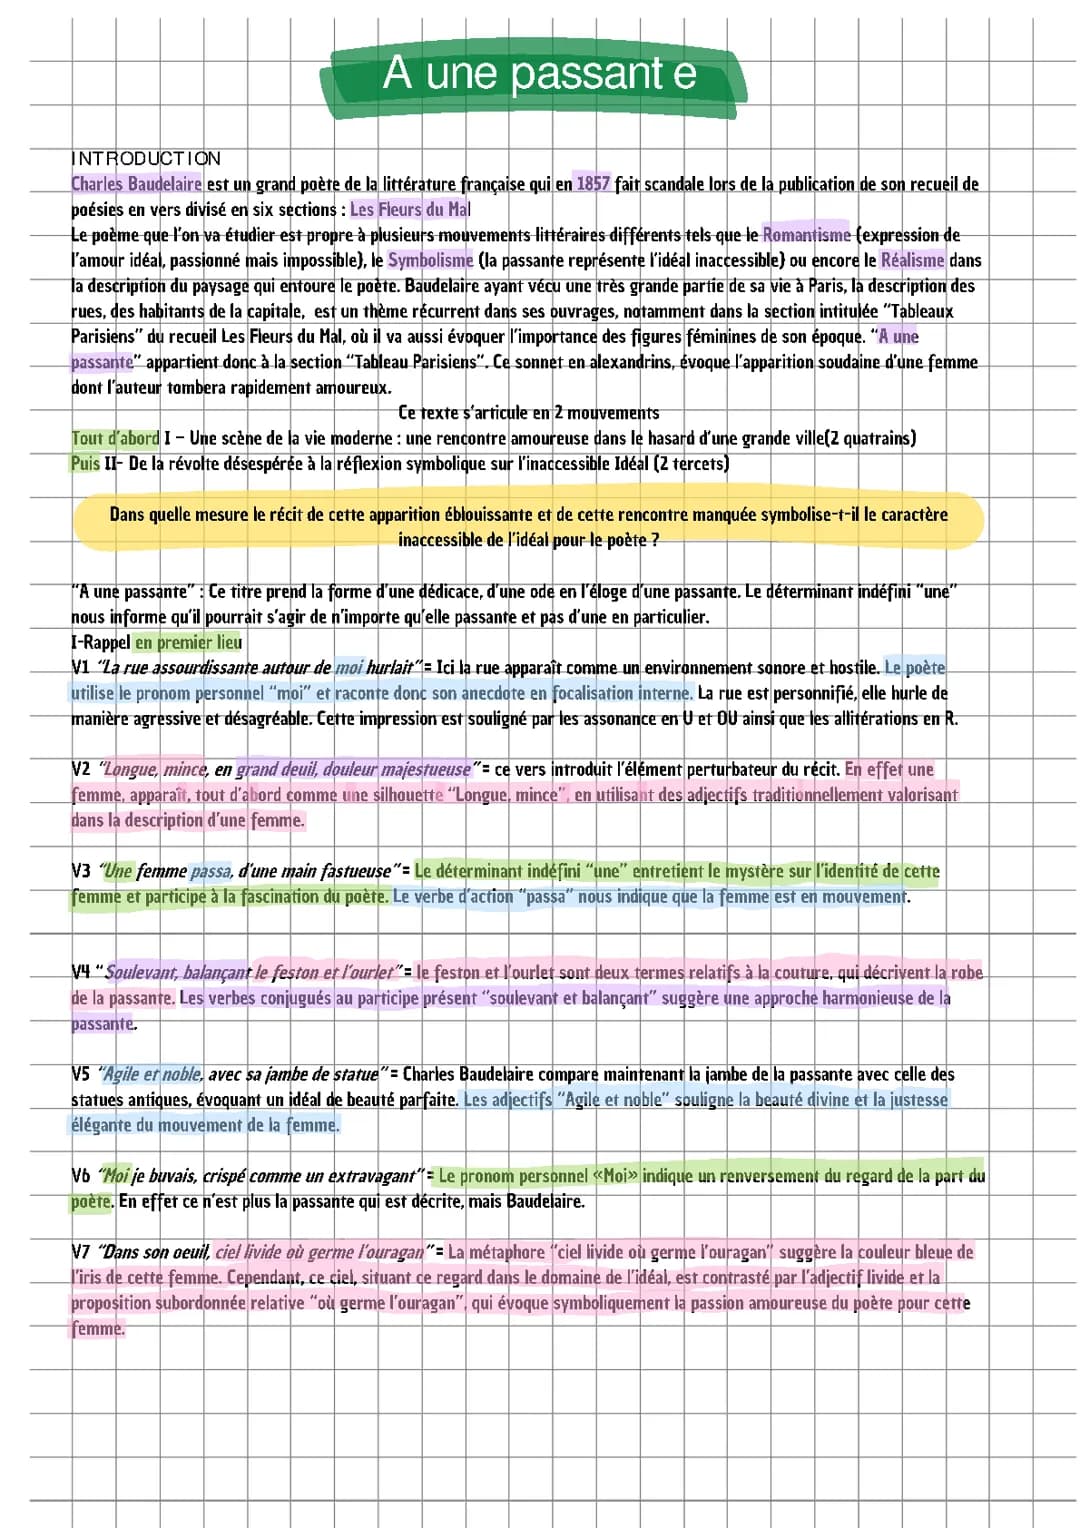 A une passant e
INTRODUCTION
Charles Baudelaire est un grand poète de la littérature française qui en 1857 fait scandale lors de la publication de son recueil de
poésies en vers divisé en six sections : Les Fleurs du Mal
Le poème que l'on va étudier est propre à plusieurs mouvements littéraires différents tels que le Romantisme (expression de
l'amour idéal, passionné mais impossible), le Symbolisme (la passante représente l'idéal inaccessible) ou encore le Réalisme dans
la description du paysage qui entoure le poète. Baudelaire ayant vécu une très grande partie de sa vie à Paris, la description des
rues, des habitants de la capitale, est un thème récurrent dans ses ouvrages, notamment dans la section intitulée "Tableaux
Parisiens" du recueil Les Fleurs du Mal, où il va aussi évoquer l'importance des figures féminines de son époque. "A une
passante" appartient donc à la section "Tableau Parisiens". Ce sonnet en alexandrins, évoque l'apparition soudaine d'une femme
dont l'auteur tombera rapidement amoureux.
Ce texte s'articule en 2 mouvements
Tout d'abord I – Une scène de la vie moderne : une rencontre amoureuse dans le hasard d'une grande ville(2 quatrains)
Puis II- De la révolte désespérée à la réflexion symbolique sur l'inaccessible Idéal (2 tercets)
Dans quelle mesure le récit de cette apparition éblouissante et de cette rencontre manquée symbolise-t-il le caractère
inaccessible de l'idéal pour le poète ?
"A une passante" : Ce titre prend la forme d'une dédicace, d'une ode en l'éloge d'une passante. Le déterminant indéfini "une"
nous informe qu'il pourrait s'agir de n'importe qu'elle passante et pas d'une en particulier.
I-Rappel en premier lieu
V1 "La rue assourdissante autour de moi hurlait"= Ici la rue apparaît comme un environnement sonore et hostile. Le poète
utilise le pronom personnel "moi" et raconte donc son anecdote en focalisation interne. La rue est personnifié, elle hurle de
manière agressive et désagréable. Cette impression est souligné par les assonance en U et OU ainsi que les allitérations en R.
V2 "Longue, mince, en grand deuil, douleur majestueuse"= ce vers introduit l'élément perturbateur du récit. En effet une
femme, apparaît, tout d'abord comme une silhouette "Longue, mince", en utilisant des adjectifs traditionnellement valorisant
dans la description d'une femme.
V3 "Une femme passa, d'une main fastueuse"= Le déterminant indéfini "une" entretient le mystère sur l'identité de cette
femme et participe à la fascination du poète. Le verbe d'action "passa" nous indique que la femme est en mouvement.
V4 "Soulevant, balançant le feston et l'ourlet"= le feston et l'ourlet sont deux termes relatifs à la couture, qui décrivent la robe
de la passante. Les verbes conjugués au participe présent "soulevant et balançant" suggère une approche harmonieuse de la
passante.
V5 "Agile et noble, avec sa jambe de statue"= Charles Baudelaire compare maintenant la jambe de la passante avec celle des
statues antiques, évoquant un idéal de beauté parfaite. Les adjectifs "Agile et noble" souligne la beauté divine et la justesse
élégante du mouvement de la femme.
V6 "Moi je buvais, crispé comme un extravagant"= Le pronom personnel «Moi» indique un renversement du regard de la part du
poète. En effet ce n'est plus la passante qui est décrite, mais Baudelaire.
V7 "Dans son oeuil, ciel livide où germe l'ouragan"= La métaphore "ciel livide où germe l'ouragan" suggère la couleur bleue de
l'iris de cette femme. Cependant, ce ciel, situant ce regard dans le domaine de l'idéal, est contrasté par l'adjectif livide et la
proposition subordonnée relative "où germe l'ouragan", qui évoque symboliquement la passion amoureuse du poète pour cette
femme.